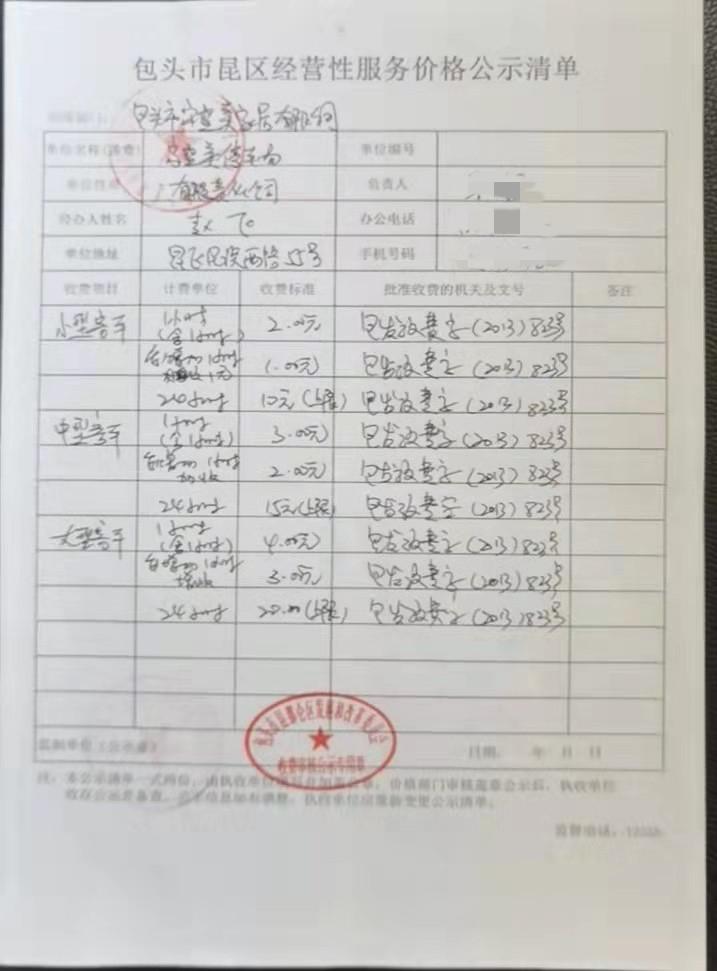 包头市昆区经营性服务价格公示清单
单位名称(清章) 单位编号
单位性质 有限责任公司 负责人
经办人姓名 赵飞 办公电话
单位地址 55号 手机号码
收费项目 计费单位 收费标准 批准收费的机关及文号 备注
小型客车 1小时(含1小时) 2.00元 包发改费字(2013)823号
每增加1小时 1.00元 包发改费字(2013)823号
24小时 10元(上限) 包发改费字(2013)823号
中型客车 1小时(含1小时) 3.00元 包发改费字(2013)823号
每增加1小时加收 2.00元 包发改费字(2013)823号
24小时 15元(上限) 包发改费字(2013)823号
大型客车 1小时(含1小时) 4.00元 包发改费字(2013)823号
每增加1小时加收 3.00元 包发改费字(2013)823号
24小时 20.00(上限) 包发改费字(2013)823号
包头市昆都仑区发展和改革委员会
收费审核公示专用章
监制单位(公示章) 日期: 年 月 日
注:本公示清单一式两份,由执收单位 价格部门审核盖章公示后,执收单位
收存公示 备查。 执收单位应重新变更公示清单。
监督电话:12358